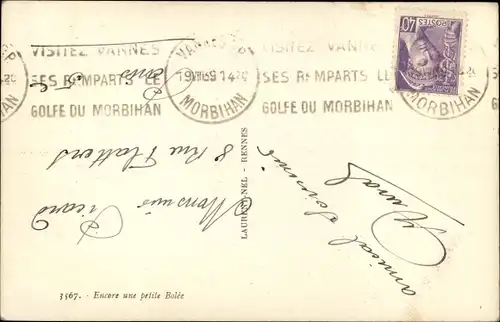 VISITEZ VANNES
SES REMPARTS LE
GOLFE DU MORBIHAN
VANNES
19 14
MORBIHAN
VISITEZ VANNES
SES REMPARTS LE
GOLFE DU MORBIHAN
MORBIHAN
POSTES
40
Monsieur
8 Rue Flatters
Paris
5e
amical souvenir
LAURENT-NEL - RENNES
3567. - Encore une petite Bolée